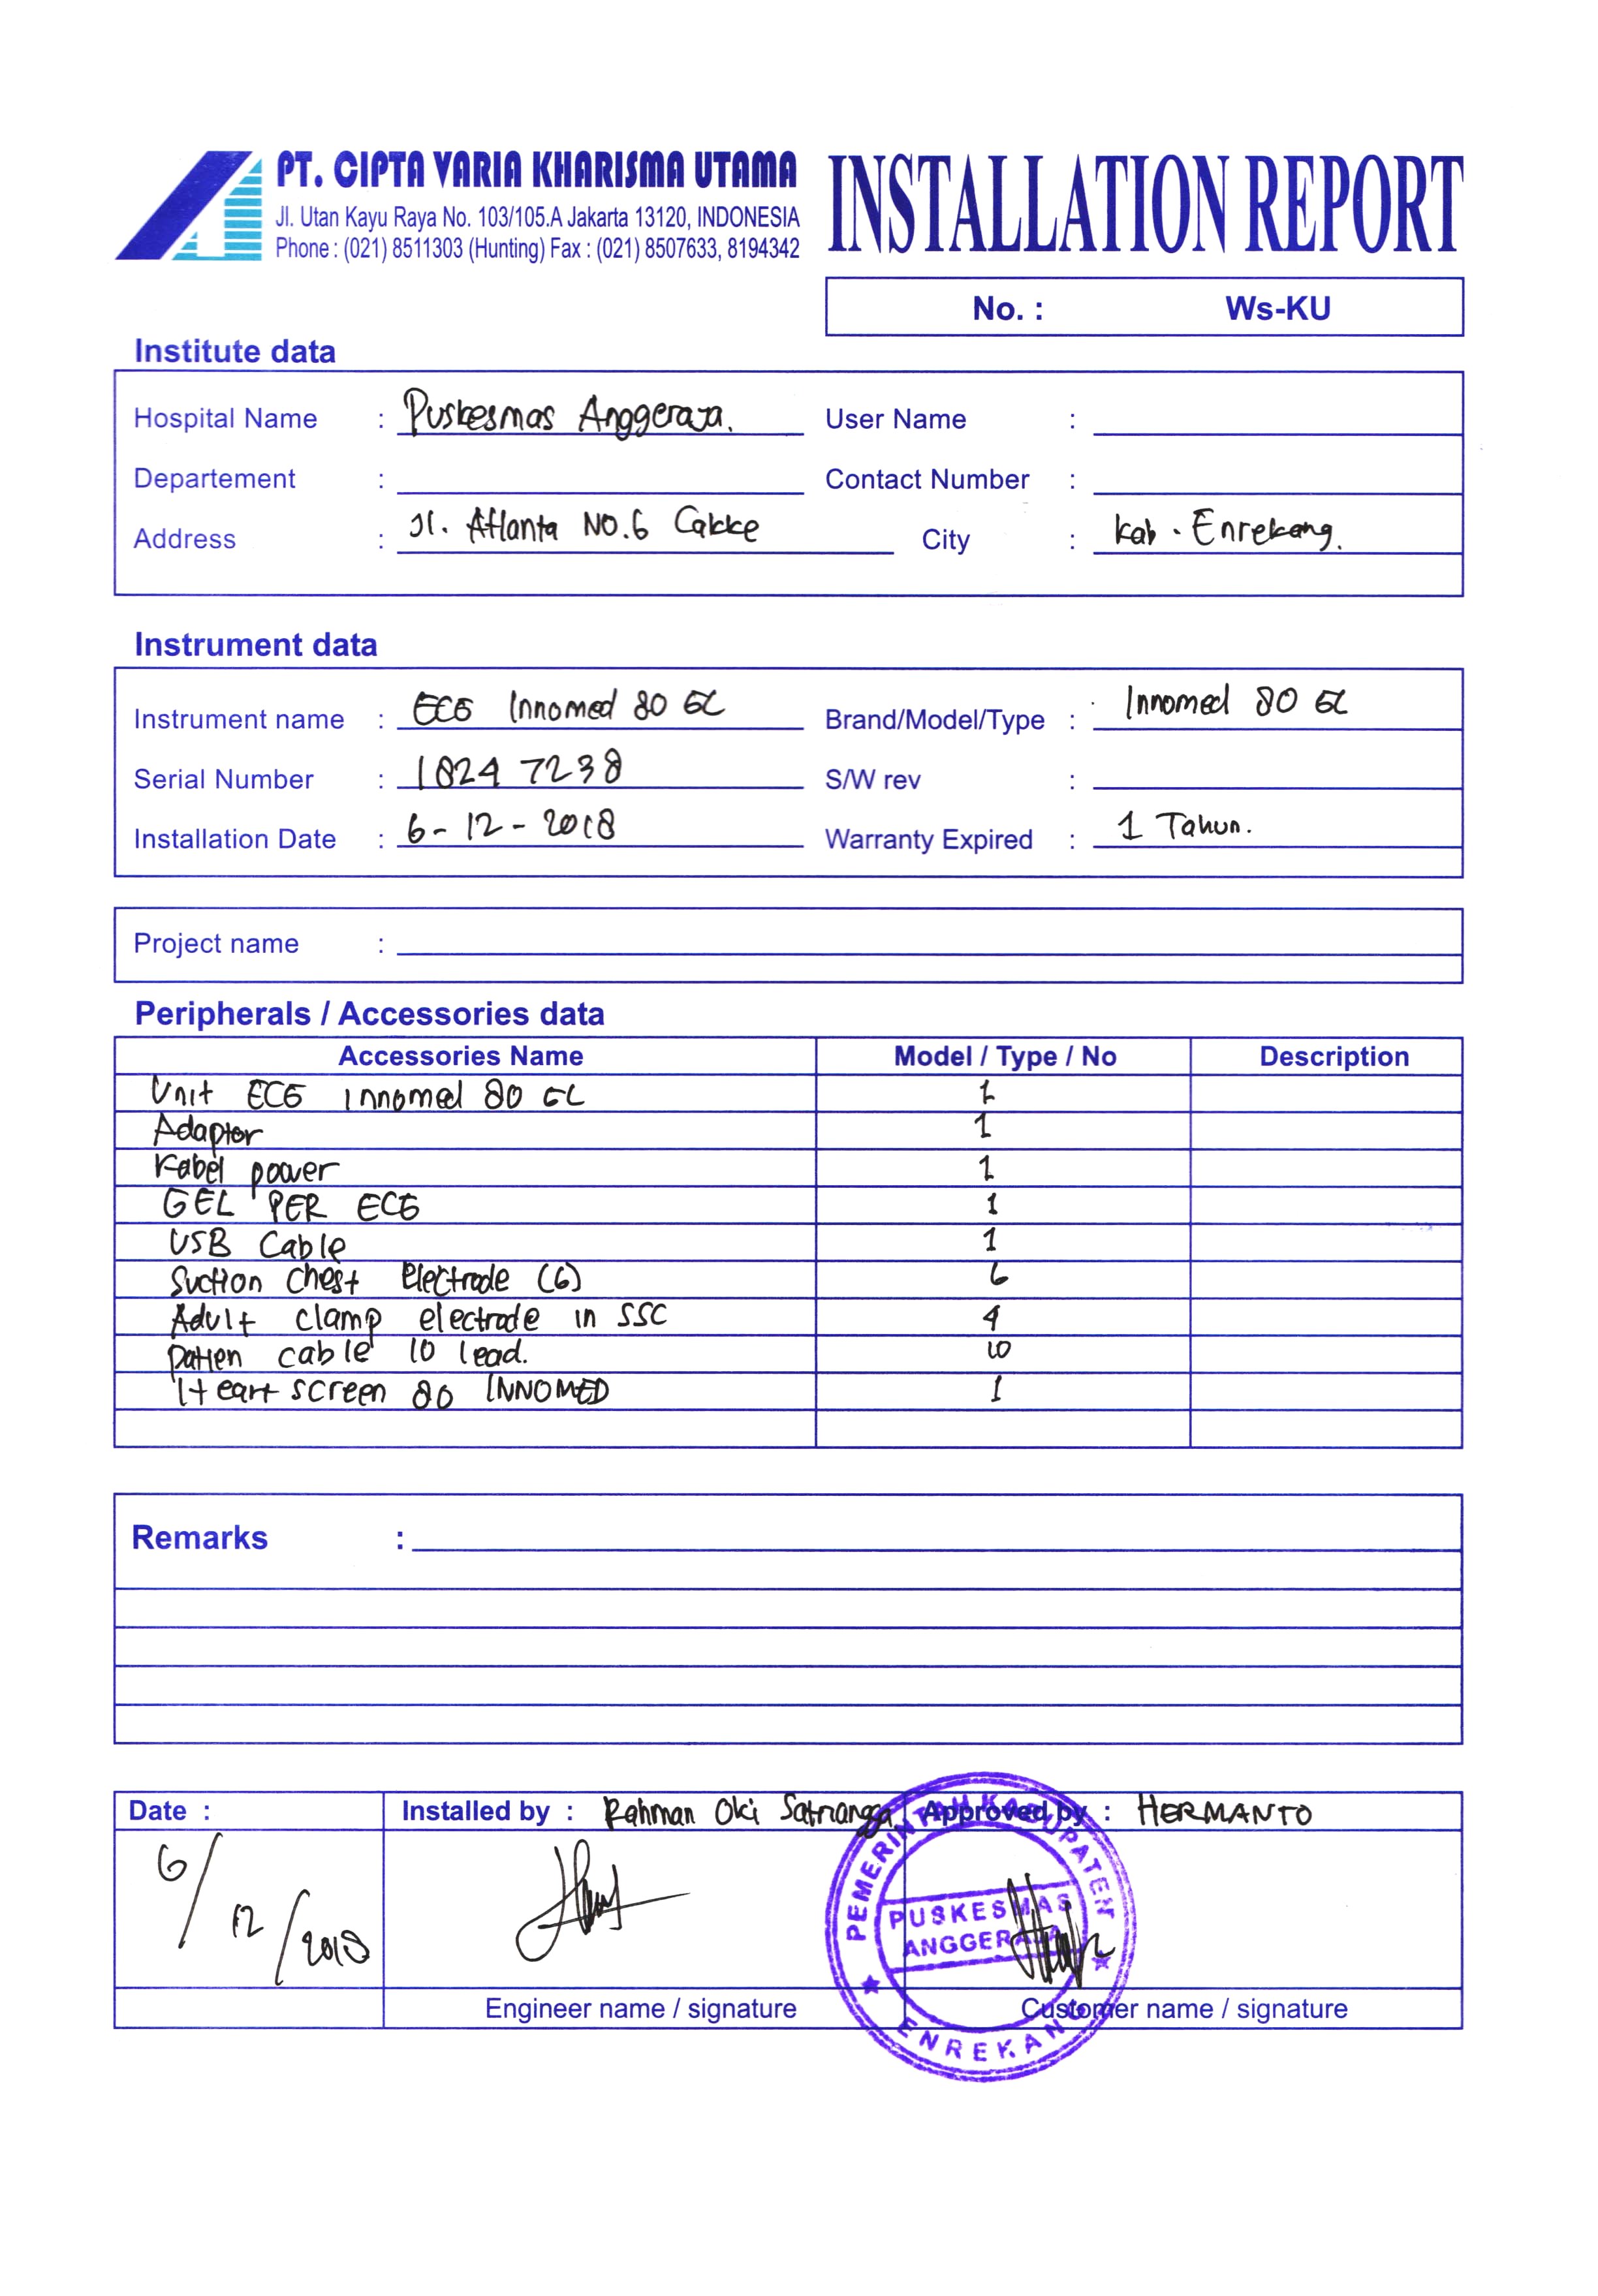 PT. CIPTA VARIA KHARISMA UTAMA
Jl. Utan Kayu Raya No. 103/105.A Jakarta 13120, INDONESIA
Phone : (021) 8511303 (Hunting) Fax : (021) 8507633, 8194342
INSTALLATION REPORT
No. : Ws-KU
Institute data
Hospital Name : Puskesmas Anggeraja. User Name :
Departement : Contact Number :
Address : Jl. Atlanta NO.6 Cakke City : Kab. Enrekang.
Instrument data
Instrument name : ECG Innomed 80 GL Brand/Model/Type : Innomed 80 GL
Serial Number : 18247238 S/W rev :
Installation Date : 6-12-2018 Warranty Expired : 1 Tahun.
Project name :
Peripherals / Accessories data
Accessories Name Model / Type / No Description
Unit ECG innomed 80 GL 1
Adaptor 1
Kabel power 1
GEL PER ECG 1
USB Cable 1
Suction chest electrode (6) 6
Adult clamp electrode in SSC 4
Patien cable 10 lead. 10
Heart screen 80 INNOMED 1
Remarks :
Date : Installed by : Rahman Oki Satriangga Approved by : HERMANTO
6/12/2018
PEMERINTAH KABUPATEN
PUSKESMAS
ANGGERAJA
ENREKANG
Engineer name / signature Customer name / signature